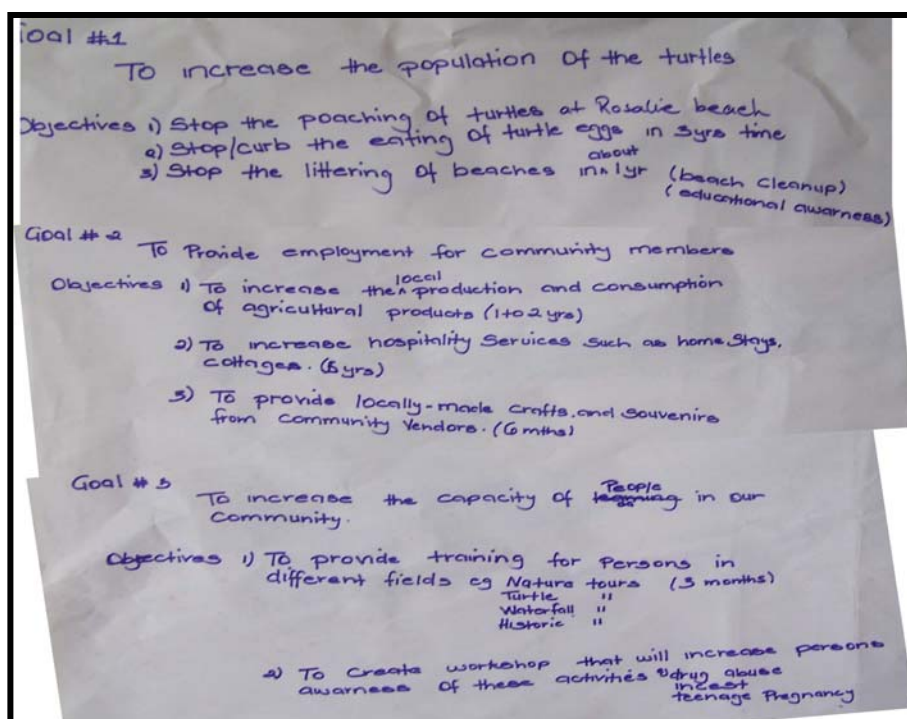 Goal #1
To increase the population of the turtles
Objectives 1) Stop the poaching of turtles at Rosalie beach
2) Stop/curb the eating of turtle eggs in 3yrs time
3) Stop the littering of beaches in about 1yr (beach cleanup)
(educational awarness)
Goal #2
To Provide employment for community members
Objectives 1) To increase the local production and consumption
of agricultural products (1 to 2 yrs)
2) To increase hospitality services such as home stays,
cottages. (5 yrs)
3) To provide locally-made crafts and souvenirs
from community vendors. (6 mths)
Goal #3
To increase the capacity of People in our
community.
Objectives 1) To provide training for persons in
different fields eg Nature tours (3 months)
Turtle "
Waterfall "
Historic "
2) To create workshop that will increase persons
awarness of these activities drug abuse
incest
teenage Pregnancy